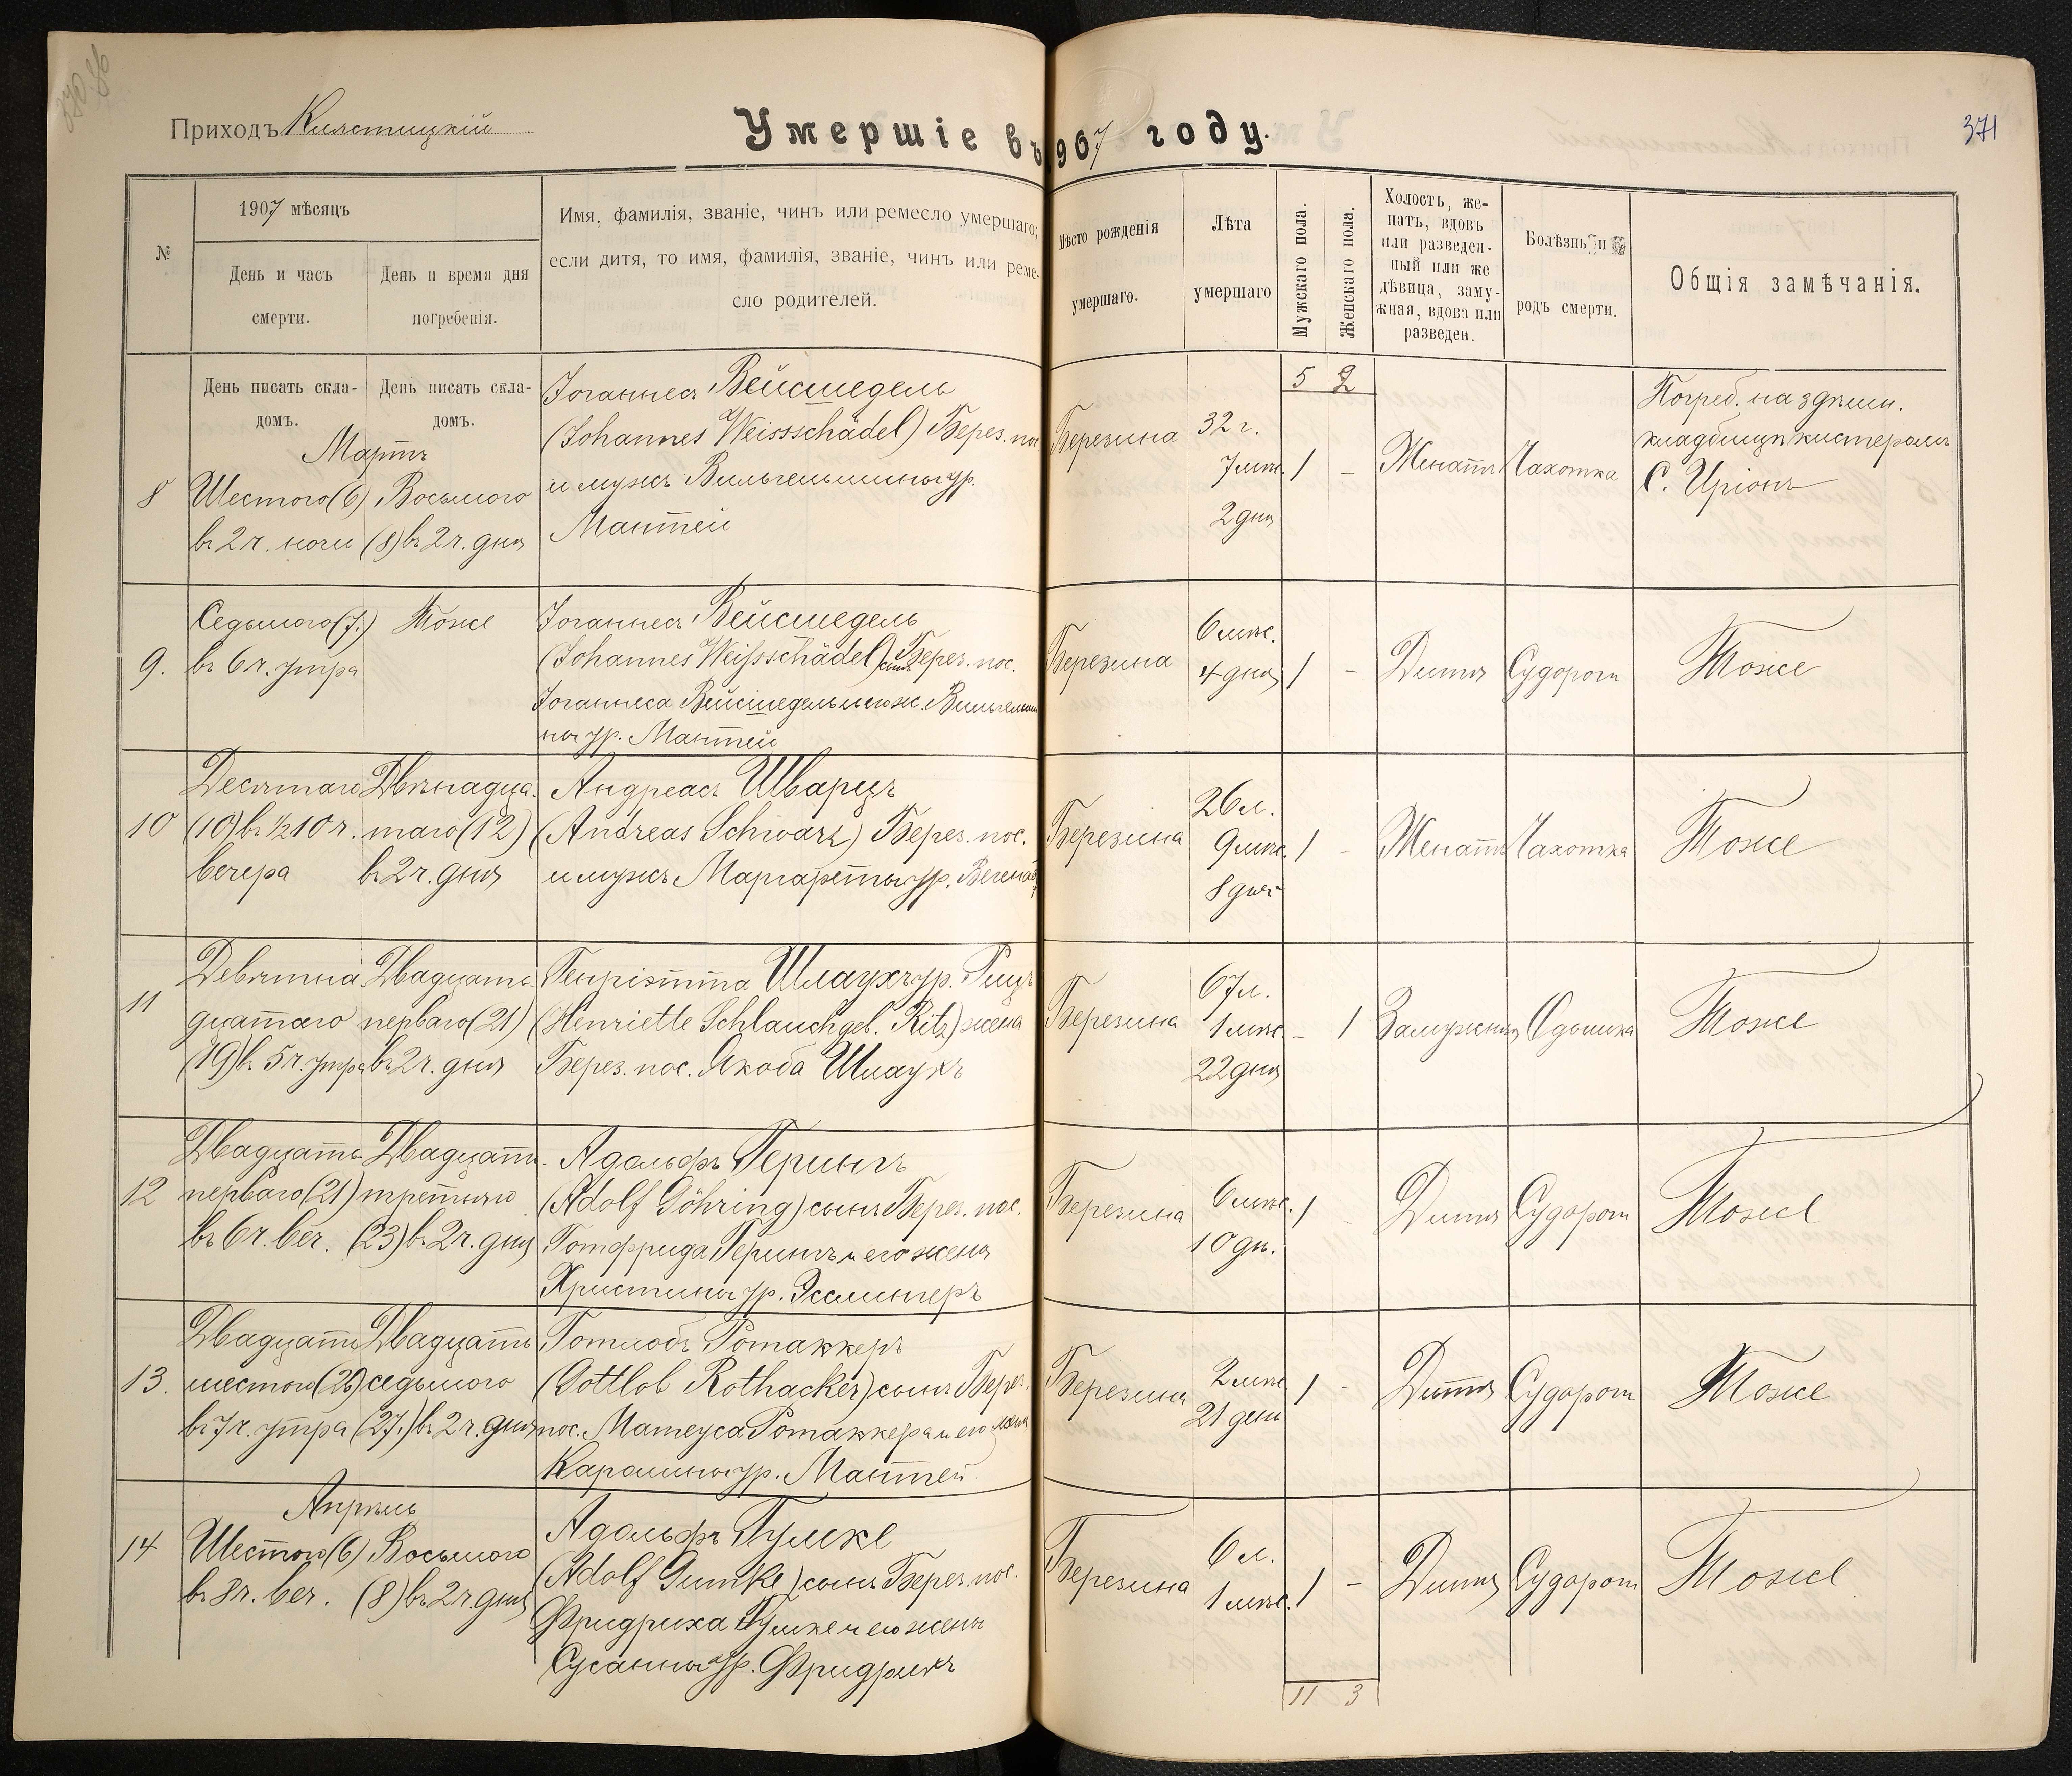 370 об
Приходъ Кулмтицкій
Умершіе въ 1907 году.
371
№
1907 мѣсяцъ
День и часъ
смерти.
День и время дня
погребенія.
Имя, фамилія, званіе, чинъ или ремесло умершаго;
если дитя, то имя, фамилія, званіе, чинъ или реме-
сло родителей.
Мѣсто рожденія
умершаго.
Лѣта
умершаго
Мужскаго пола.
Женскаго пола.
Холость, же-
натъ, вдовъ
или разведен-
ный или же
дѣвица, заму-
жняя, вдова или
разведен.
Болѣзнь и
родъ смерти.
Общія замѣчанія.
День писать скла-
домъ.
День писать скла-
домъ.
5 2
Мартъ
8
Шестого (6)
въ 2 ч. ночи
Восьмого
(8) въ 2 ч. дня
Іоганнесъ Вейсшедель
(Johannes Weissschädel) Берез. пос.
и мужъ Вильгельмины ур.
Мантей
Березина
32 г.
7 мѣс.
2 дня
1 –
Женатъ
Чахотка
Погреб. на здѣшн.
кладбищѣ кистеромъ
С. Иріонъ
9.
Седьмого (7.)
въ 6 ч. утра
Тоже
Іоганнесъ Вейсшедель
(Johannes Weißschädel) сынъ Берез. пос.
Іоганнеса Вейсшедель и его ж. Вильгельми
ны ур. Мантей
Березина
6 мѣс.
4 дня
1 –
Дитя
Судороги
Тоже
10
Десятаго
(10) въ ½10 ч.
вечера
Двѣнадца-
таго (12)
въ 2 ч. дня
Андреасъ Шварцъ
(Andreas Schwarz) Берез. пос.
и мужъ Маргареты ур.
Березина
26 л.
9 мѣс.
8 дн.
1 –
Женатъ
Чахотка
Тоже
11
Девятна
дцатаго
(19) въ 5 ч. утра
Двадцать
перваго (21)
въ 2 ч. дня
Генріэтта Шлаухъ ур. Рицъ
(Henriette Schlauch geb. Ritz) жена
Берез. пос. Якоба Шлаухъ
Березина
67 л.
1 мѣс.
22 дня
– 1
Замужняя
Одышка
Тоже
12
Двадцать
перваго (21)
въ 6 ч. веч.
Двадцать
третьяго
(23) въ 2 ч. дня
Адольфъ Герингъ
(Adolf Göhring) сынъ Берез. пос.
Готфрида Герингъ и его жены
Христины ур. Эсслингеръ
Березина
6 мѣс.
10 дн.
1 –
Дитя
Судороги
Тоже
13.
Двадцать
шестого (26)
въ 7 ч. утра
Двадцать
седьмого
(27.) въ 2 ч. дня
Готлобъ Ротаккеръ
(Gottlob Rothacker) сынъ Берез.
пос. Матеуса Ротаккера и его жены
Каролины ур. Мантей
Березина
2 мѣс
21 день
1 –
Дитя
Судороги
Тоже
Апрѣль
14
Шестого (6)
въ 8 ч. веч.
Восьмого
(8) въ 2 ч. дня
Адольфъ Гумке
(Adolf Gumke) сынъ Берез. пос.
Фридриха Гумке и его жены
Сусанны ур. Фридрихъ
Березина
6 л.
1 мѣс.
1 –
Дитя
Судороги
Тоже
11 3